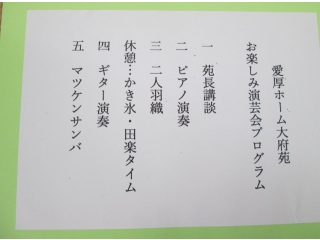 愛厚ホーム大府苑
お楽しみ演芸会プログラム
一 苑長講談
二 ピアノ演奏
三 二人羽織
休憩…かき氷・田楽タイム
四 ギター演奏
五 マツケンサンバ